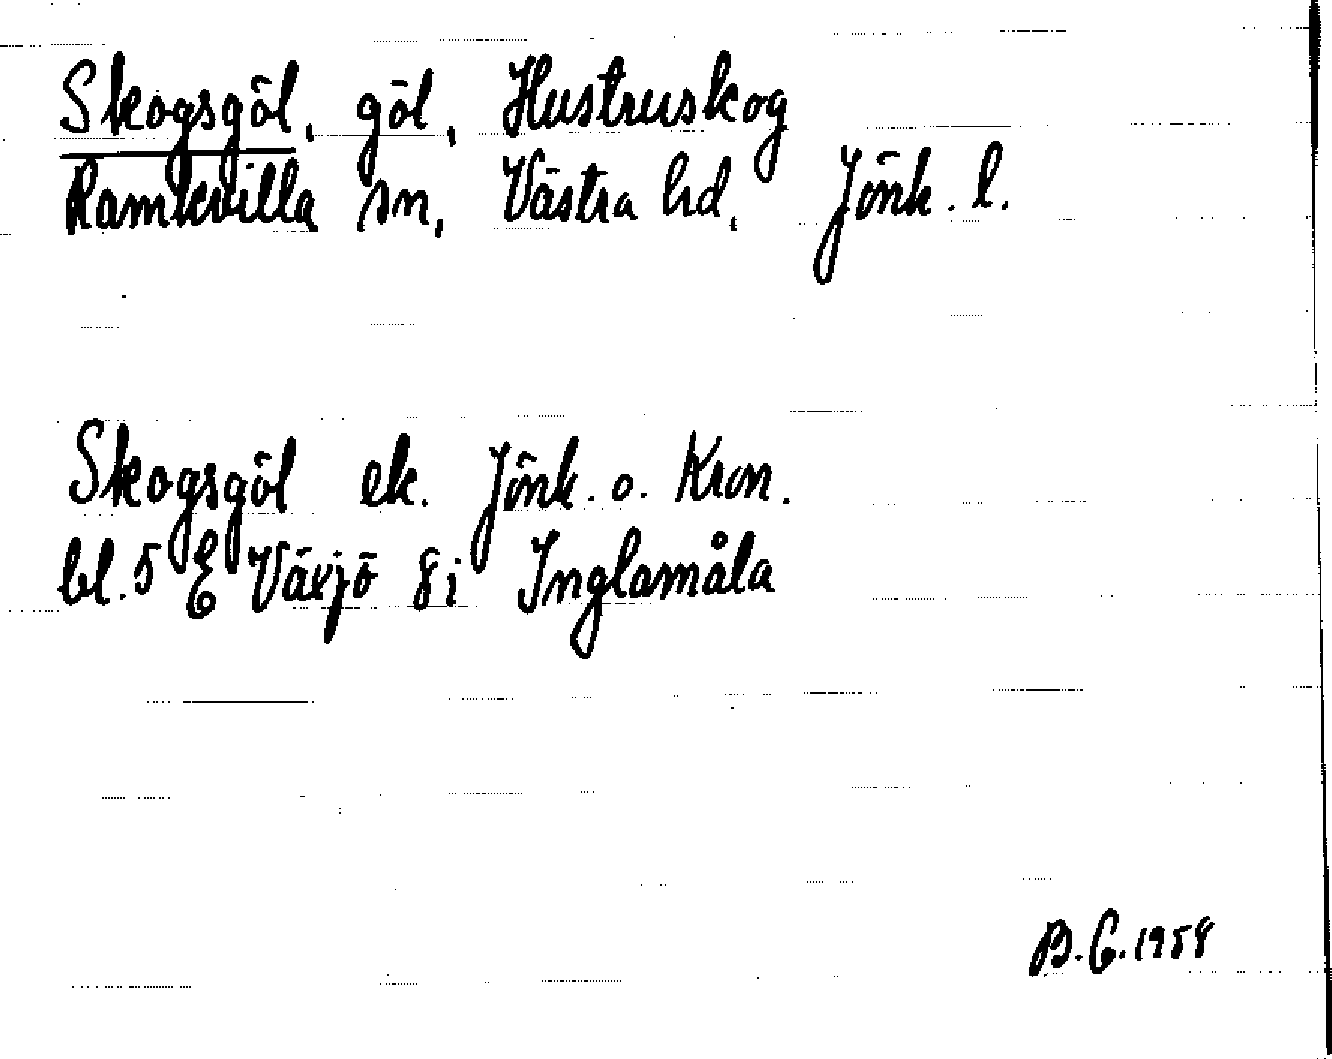 Skogsgöl, göl, Hustruskog
Ramkvilla sn, Västra hd, Jönk. l.
Skogsgöl ek. Jönk. o. Kron.
bl. 5 E Växjö 8i Inglamåla
B.G. 1958